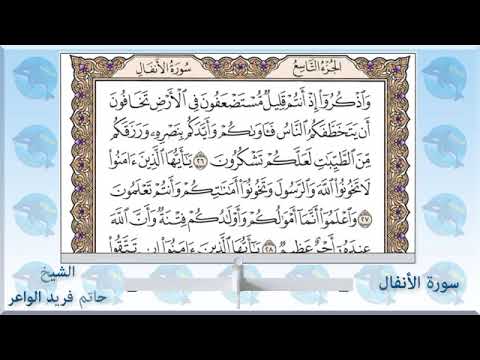 الجزء التاسع
سورة الأنفال
وَاذْكُرُوا إِذْ أَنتُمْ قَلِيلٌ مُّسْتَضْعَفُونَ فِي الْأَرْضِ تَخَافُونَ
أَن يَتَخَطَّفَكُمُ النَّاسُ فَآوَاكُمْ وَأَيَّدَكُم بِنَصْرِهِ وَرَزَقَكُم
مِّنَ الطَّيِّبَاتِ لَعَلَّكُمْ تَشْكُرُونَ ٢٦ يَا أَيُّهَا الَّذِينَ آمَنُوا
لَا تَخُونُوا اللَّهَ وَالرَّسُولَ وَتَخُونُوا أَمَانَاتِكُمْ وَأَنتُمْ تَعْلَمُونَ
٢٧ وَاعْلَمُوا أَنَّمَا أَمْوَالُكُمْ وَأَوْلَادُكُمْ فِتْنَةٌ وَأَنَّ اللَّهَ
عِندَهُ أَجْرٌ عَظِيمٌ ٢٨ يَا أَيُّهَا الَّذِينَ آمَنُوا إِن تَتَّقُوا
الشيخ
حاتم فريد الواعر
سورة الأنفال